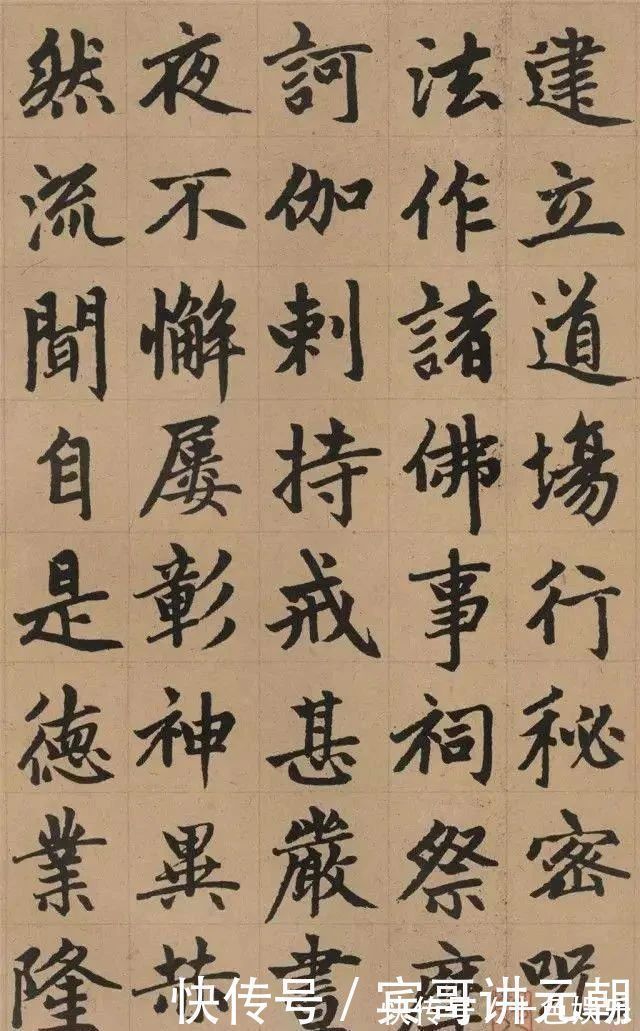 建立道場行秘密呪
法作諸佛事祠祭摩
訶伽剌持戒甚嚴晝
夜不懈屡彰神異赫
然流聞自是德業隆
快传号/宾哥讲元朝